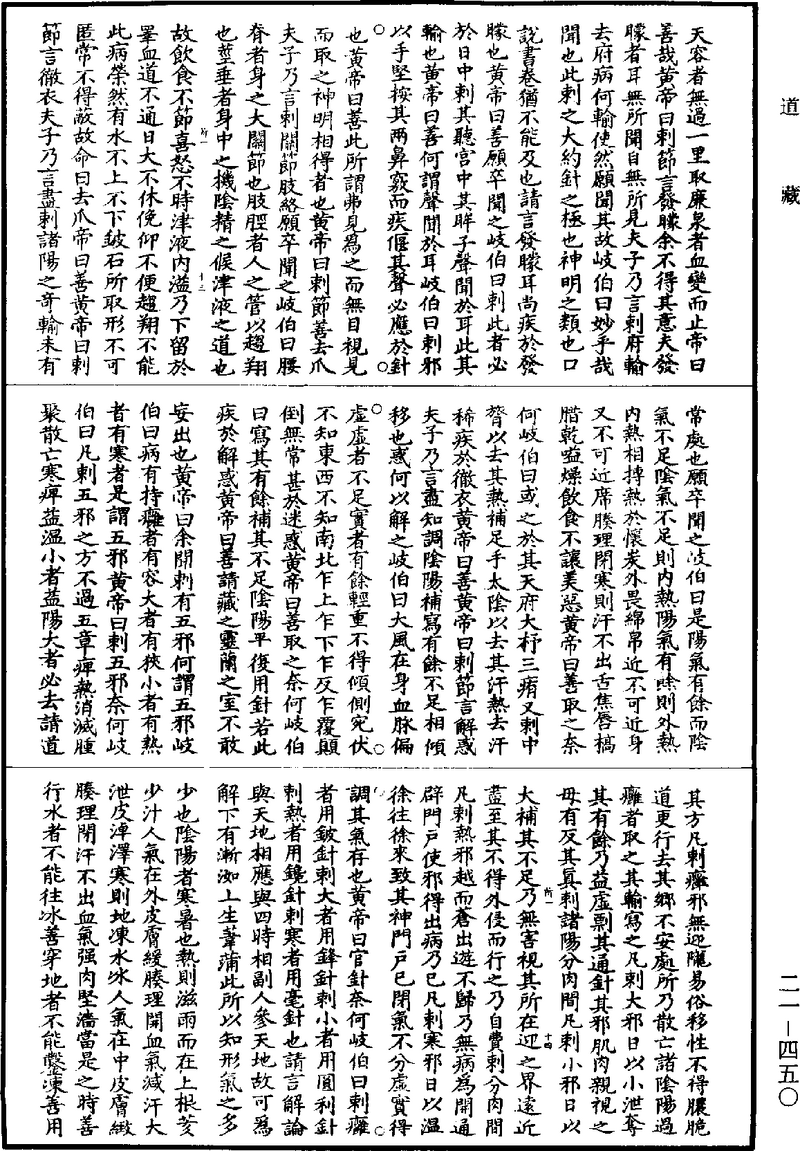 道藏
天容者無過一里取廉泉者血變而止帝曰
善哉黃帝曰刺節言發矇余不得其意夫發
矇者耳無所聞目無所見夫子乃言刺府輸
去府病何輸使然願聞其故岐伯曰妙乎哉
問也此刺之大約針之極也神明之類也口
說書卷猶不能及也請言發矇耳尚疾於發
矇也黃帝曰善願卒聞之岐伯曰刺此者必
於日中刺其聽宮中其眸子聲聞於耳此其
輸也黃帝曰善何謂聲聞於耳岐伯曰刺邪
以手堅按其兩鼻竅而疾偃其聲必應於針
也黃帝曰善此所謂弗見為之而無目視見
而取之神明相得者也黃帝曰刺節言去爪
夫子乃言刺關節肢絡願卒聞之岐伯曰腰
脊者身之大關節也肢脛者人之管以趨翔
也莖垂者身中之機陰精之候津液之道也
故飲食不節喜怒不時津液內溢乃下留於
睪血道不通日大不休俛仰不便趨翔不能
此病滎然有水不上不下鈹石所取形不可
匿常不得蔽故命曰去爪帝曰善黃帝曰刺
節言徹衣夫子乃言盡刺諸陽之奇輸未有
常處也願卒聞之岐伯曰是陽氣有餘而陰
氣不足陰氣不足則內熱陽氣有餘則外熱
內熱相搏熱於懷炭外畏綿帛近不可近身
又不可近席腠理閉寒則汗不出舌焦唇槁
腊乾嗌燥飲食不讓美惡黃帝曰善取之奈
何岐伯曰或之於其天府大杼三痏又刺中
膂以去其熱補足手太陰以去其汗熱去汗
稀疾於徹衣黃帝曰善黃帝曰刺節言解惑
夫子乃言盡知調陰陽補寫有餘不足相傾
移也惑何以解之岐伯曰大風在身血脉偏
虛虛者不足實者有餘輕重不得傾側宛伏
不知東西不知南北乍上乍下乍反乍覆顛
倒無常甚於迷惑黃帝曰善取之奈何岐伯
曰寫其有餘補其不足陰陽平復用針若此
疾於解惑黃帝曰善請藏之靈蘭之室不敢
妄出也黃帝曰余聞刺有五邪何謂五邪岐
伯曰病有持癰者有容大者有狹小者有熱
者有寒者是謂五邪黃帝曰刺五邪奈何岐
伯曰凡刺五邪之方不過五章癉熱消滅腫
聚散亡寒痺益溫小者益陽大者必去請道
其方凡刺癰邪無迎隴易俗移性不得膿脆
道更行去其鄉不安處所乃散亡諸陰陽過
癰者取之其輸寫之凡刺大邪日以小泄奪
其有餘乃益虛剽其通針其邪肌肉親視之
毋有反其真刺諸陽分肉間凡刺小邪日以
大補其不足乃無害視其所在迎之界遠近
盡至其不得外侵而行之乃自費刺分肉間
凡刺熱邪越而蒼出遊不歸乃無病為開通
辟門戶使邪得出病乃已凡刺寒邪日以溫
徐往徐來致其神門戶已閉氣不分虛實得
調其氣存也黃帝曰官針奈何岐伯曰刺癰
者用鈹針刺大者用鋒針刺小者用圓利針
刺熱者用鑱針刺寒者用毫針也請言解論
與天地相應與四時相副人參天地故可為
解下有漸洳上生葦蒲此所以知形氣之多
少也陰陽者寒暑也熱則滋雨而在上根荄
少汁人氣在外皮膚緩腠理開血氣減汗大
泄皮淖澤寒則地凍水冰人氣在中皮膚緻
腠理閉汗不出血氣强肉堅濇當是之時善
行水者不能往冰善穿地者不能鑿凍善用
二一－四五〇